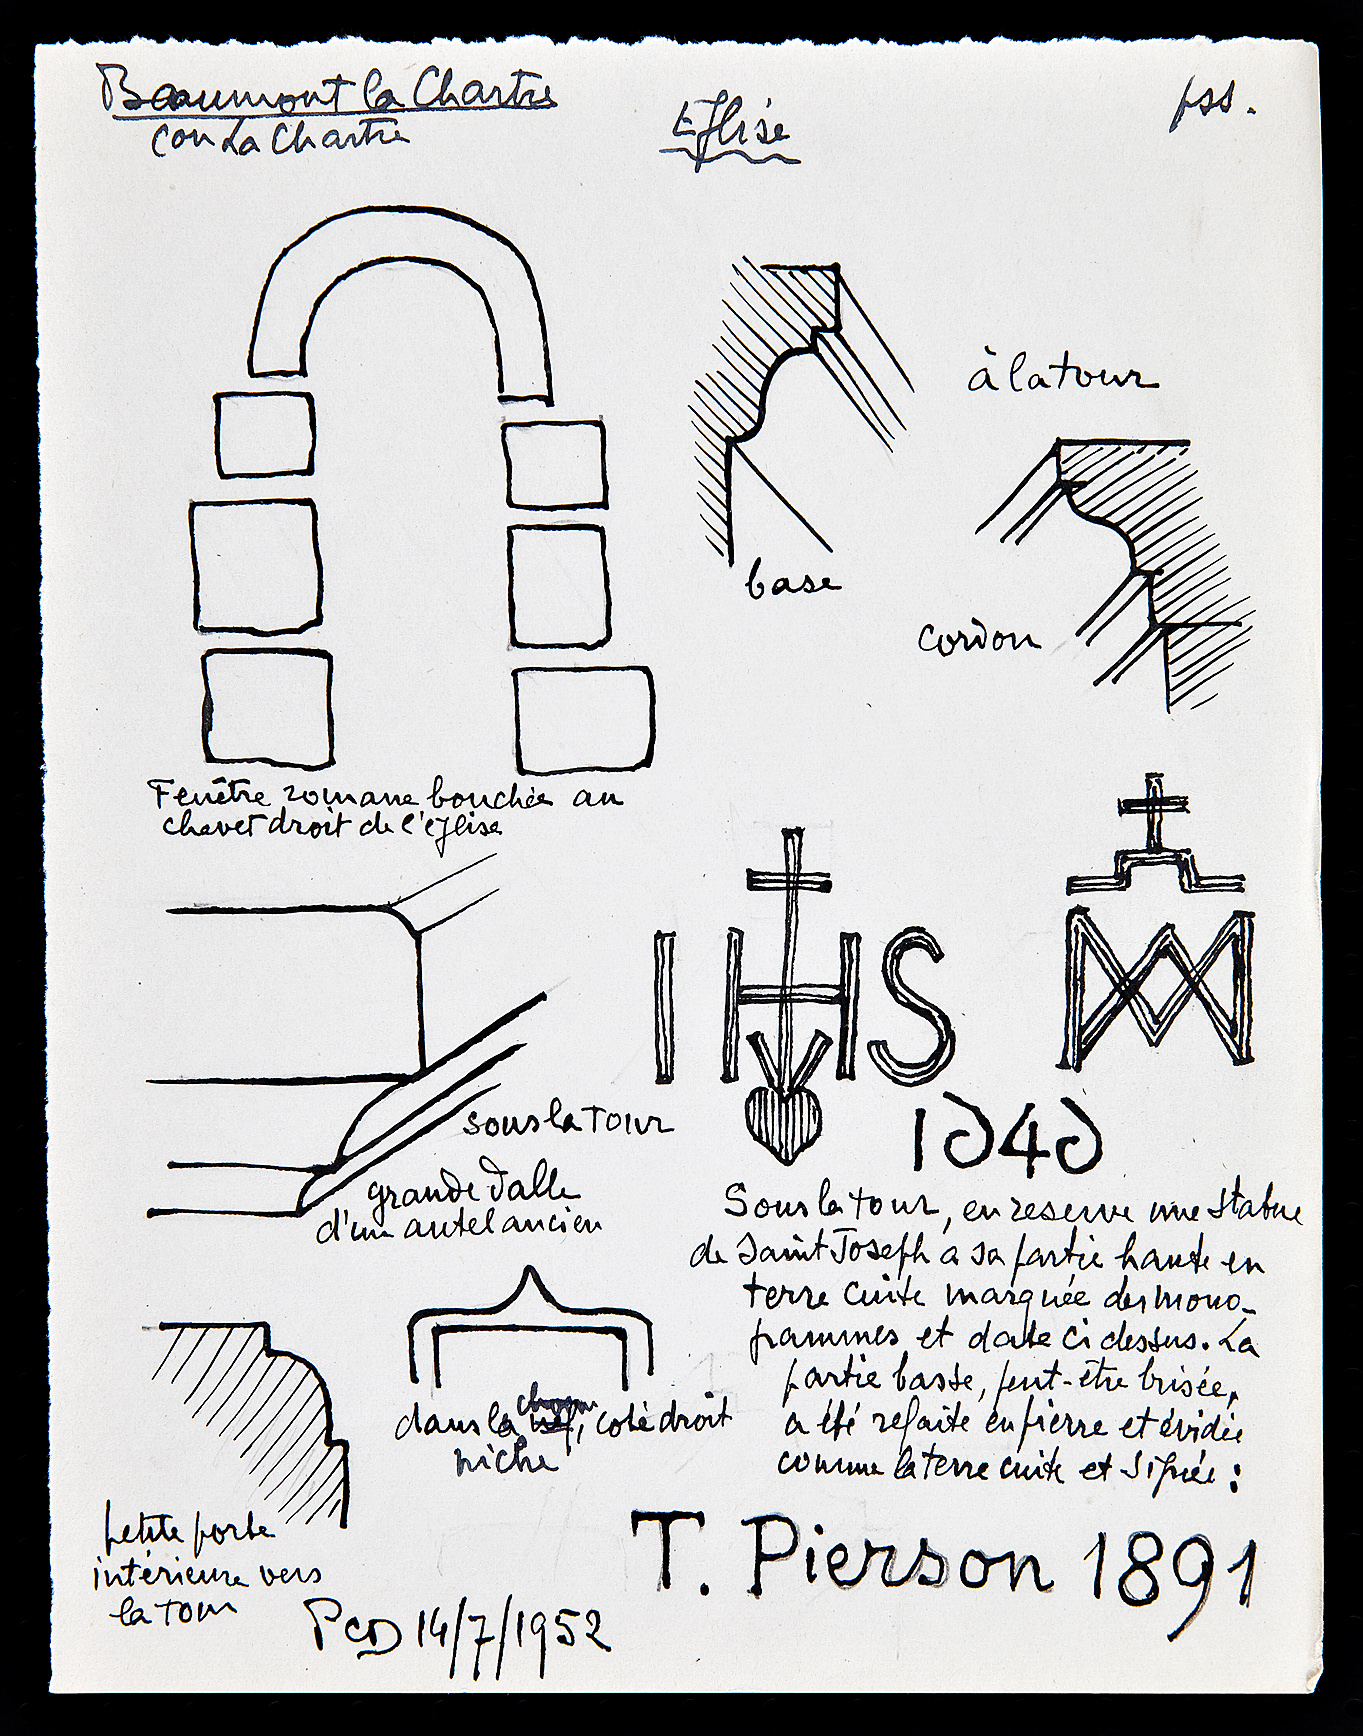 Beaumont la Chartre
con La Chartre
Eglise
pss.
à la tour
base
cordon
Fenêtre romane bouchée au
chevet droit de l'église
IHS
1646
sous la tour
grande dalle
d'un autel ancien
Sous la tour, en reserve une statue
de Saint Joseph a sa partie haute en
terre cuite marquée des mono-
grammes et date ci dessus. La
partie basse, peut-être brisée,
a été refaite en pierre et évidée
comme la terre cuite et signée :
T. Pierson 1891
dans la nef, coté droit
niche
petite porte
intérieure vers
la tour
PCD 14/7/1952